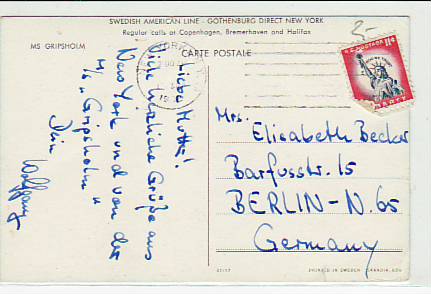 SWEDISH AMERICAN LINE - GOTHENBURG DIRECT NEW YORK
Regular calls at Copenhagen, Bremerhaven and Halifax
MS GRIPSHOLM
CARTE POSTALE
Liebe Mutti!
Viele herzliche Grüße aus
New York und von der
M/S "Gripsholm"
Dein
Wolfgang
U.S. POSTAGE 11¢
LIBERTY
Mrs.
Elisabeth Becker
Barfusstr. 15
BERLIN-N. 65
Germany
PRINTED IN SWEDEN